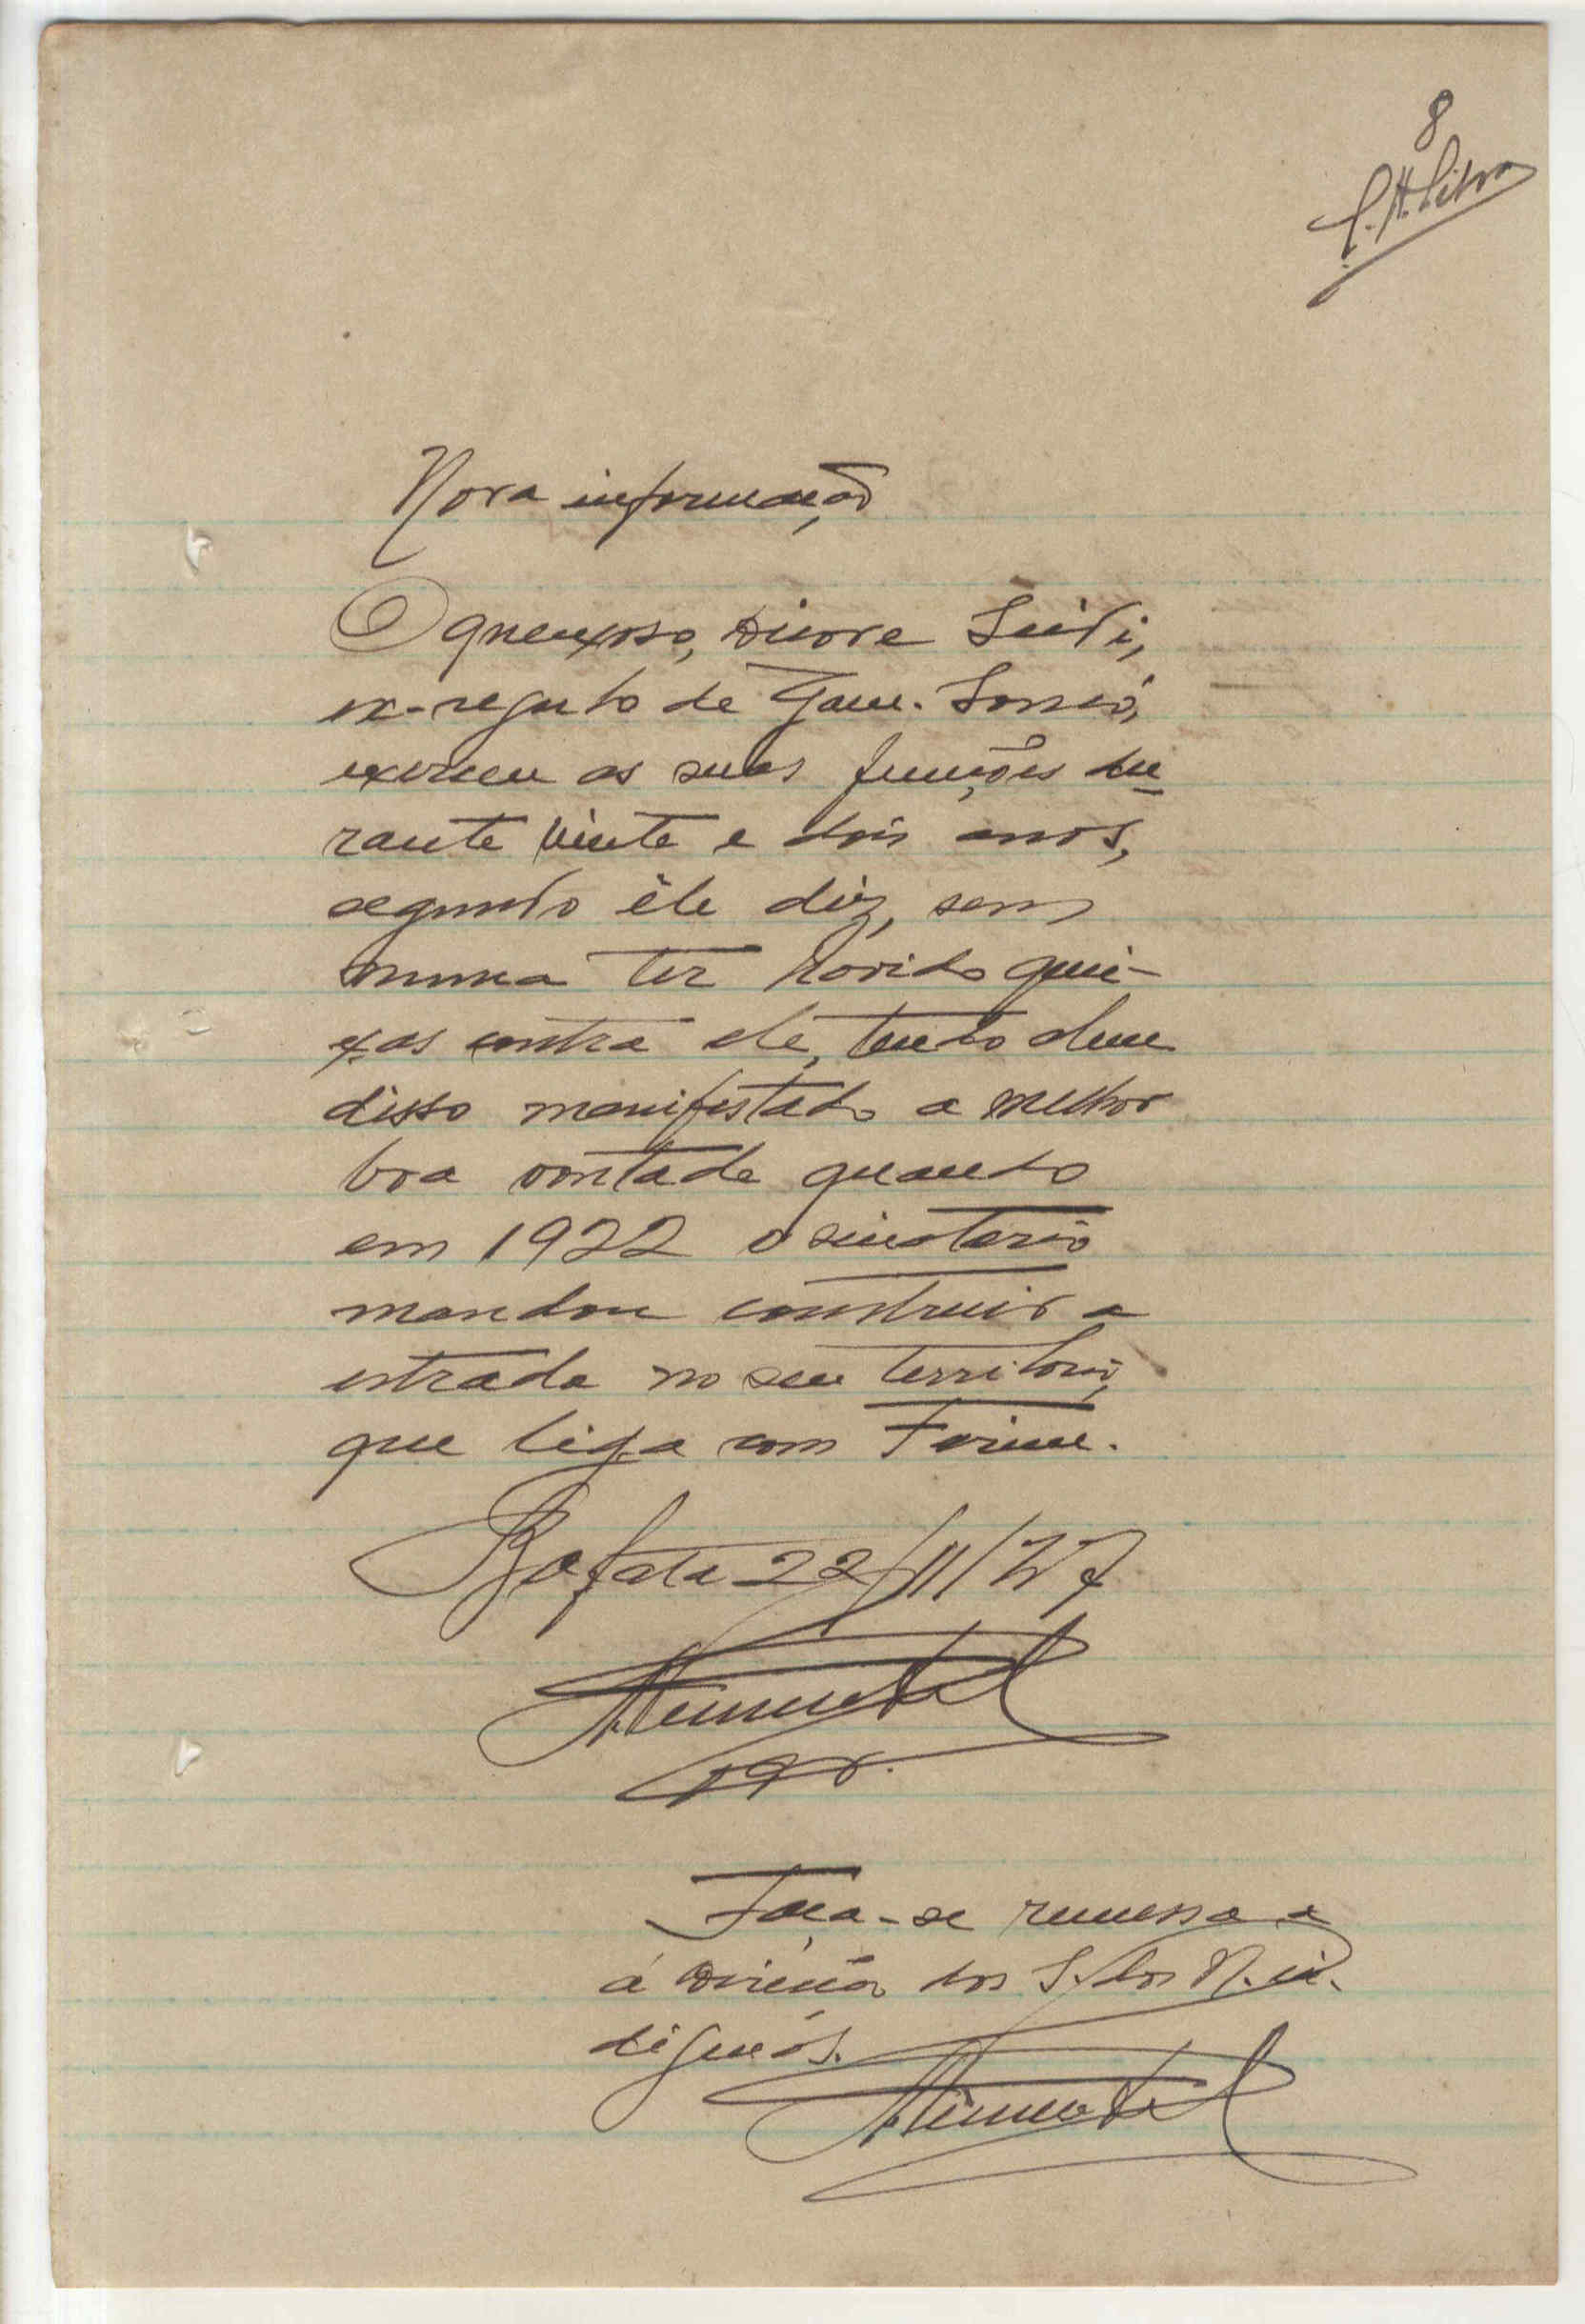 8
Nova informação
O queixoso, Divore Seidi,
ex-regulo de Gam. Sonsó,
exerceu as suas funções du
rante vinte e dois anos,
segundo êle diz, sem
nunca ter havido quei-
xas contra ele, tendo alem
disso manifestado a melhor
boa vontade quando
em 1922 o sinatario
mandou construir a
estrada no seu territorio,
que liga com Farim.
Bafatá 22/11/27
Faça-se remessa a
á Direcção dos S. dos N. in-
digenas.